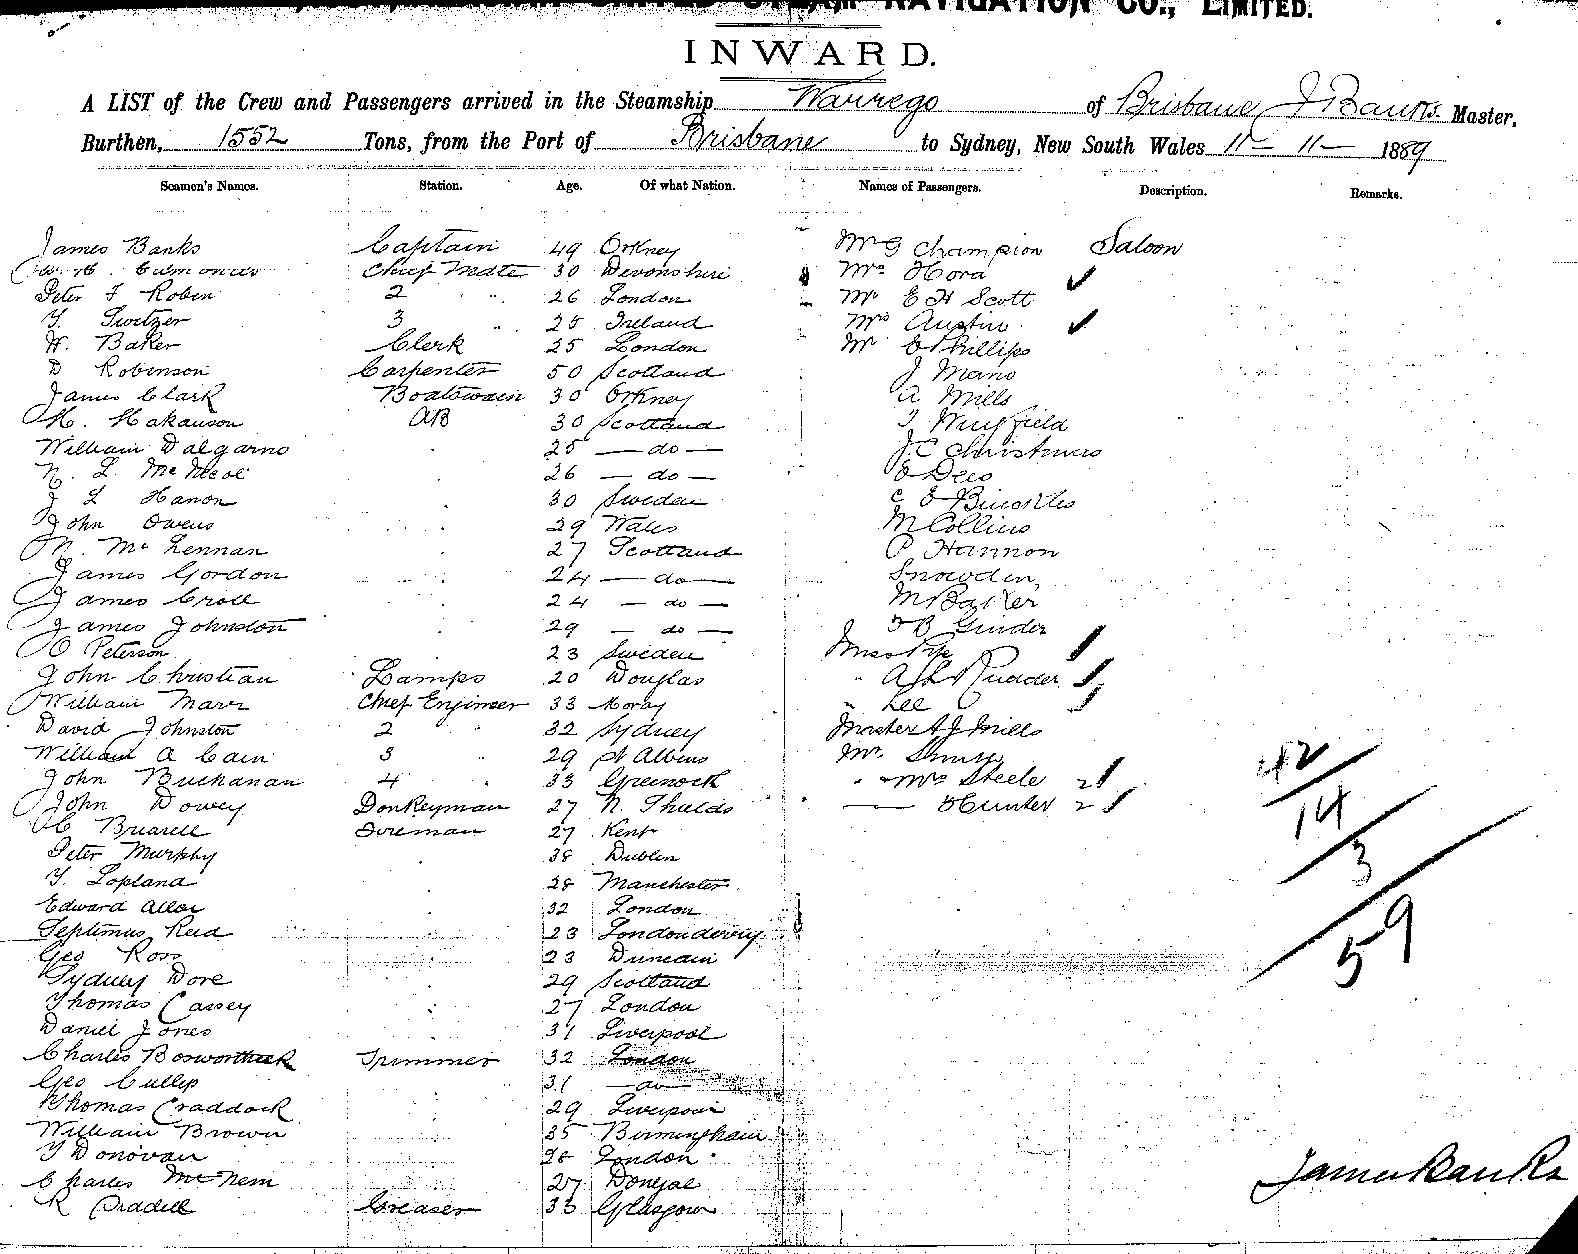 NAVIGATION CO., LIMITED.
INWARD.
A LIST of the Crew and Passengers arrived in the Steamship Warrego of Brisbane, J Banks Master,
Burthen, 1552 Tons, from the Port of Brisbane to Sydney, New South Wales 11 - 11 - 1889
Seamen's Names. Station. Age. Of what Nation. Names of Passengers. Description. Remarks.
James Banks Captain 49 Orkney Mr G Champion Saloon
Chief Mate 30 Devonshire Mrs Hora
Peter F Robin 2 " 26 London Mr E H Scott
T. Switzer 3 " 25 Ireland Mrs Austin
W. Baker Clerk 25 London Mr E Phillips
D Robinson Carpenter 50 Scotland J Mano
James Clark Boatswain 30 Orkney A Mills
AB 30 Scotland
William Dalgarno 25 — do — J C Christmas
N. L. McNicol 26 — do —
J L Hanon 30 Sweden
John Owens 29 Wales M Collins
N. McLennan 27 Scotland P Hannon
James Gordon 24 — do — Snowden
James Croll 24 — do — M Barker
James Johnston 29 — do —
O Peterson 23 Sweden Miss
John Christian Lamps 20 Douglas "
William Marr Chief Engineer 33 Moray " Lee
David Johnston 2 " 32 Sydney Master A J Mills
William A Cain 3 29 St Albans Mr
John Buchanan 4 " 33 Greenock " + Mrs Steele 2
John Dowey Donkeyman 27 N. Shields — Hunter 2
Fireman 27 Kent
Peter Murphy 38 Dublin
T. Lopland 28 Manchester
Edward 32 London
Septimus Reid 23 Londonderry
Geo Ross 23
Sydney Dore 29 Scotland
Thomas Cassey 27 London
Daniel Jones 31 Liverpool
Charles Trimmer 32 London
Geo Cullip 31 — do —
Thomas Craddock 29 Liverpool
William Brown 35 Birmingham
T Donovan 28 London
Charles 27 Donegal
R Greaser 33 Glasgow
42
14
3
59
James Banks